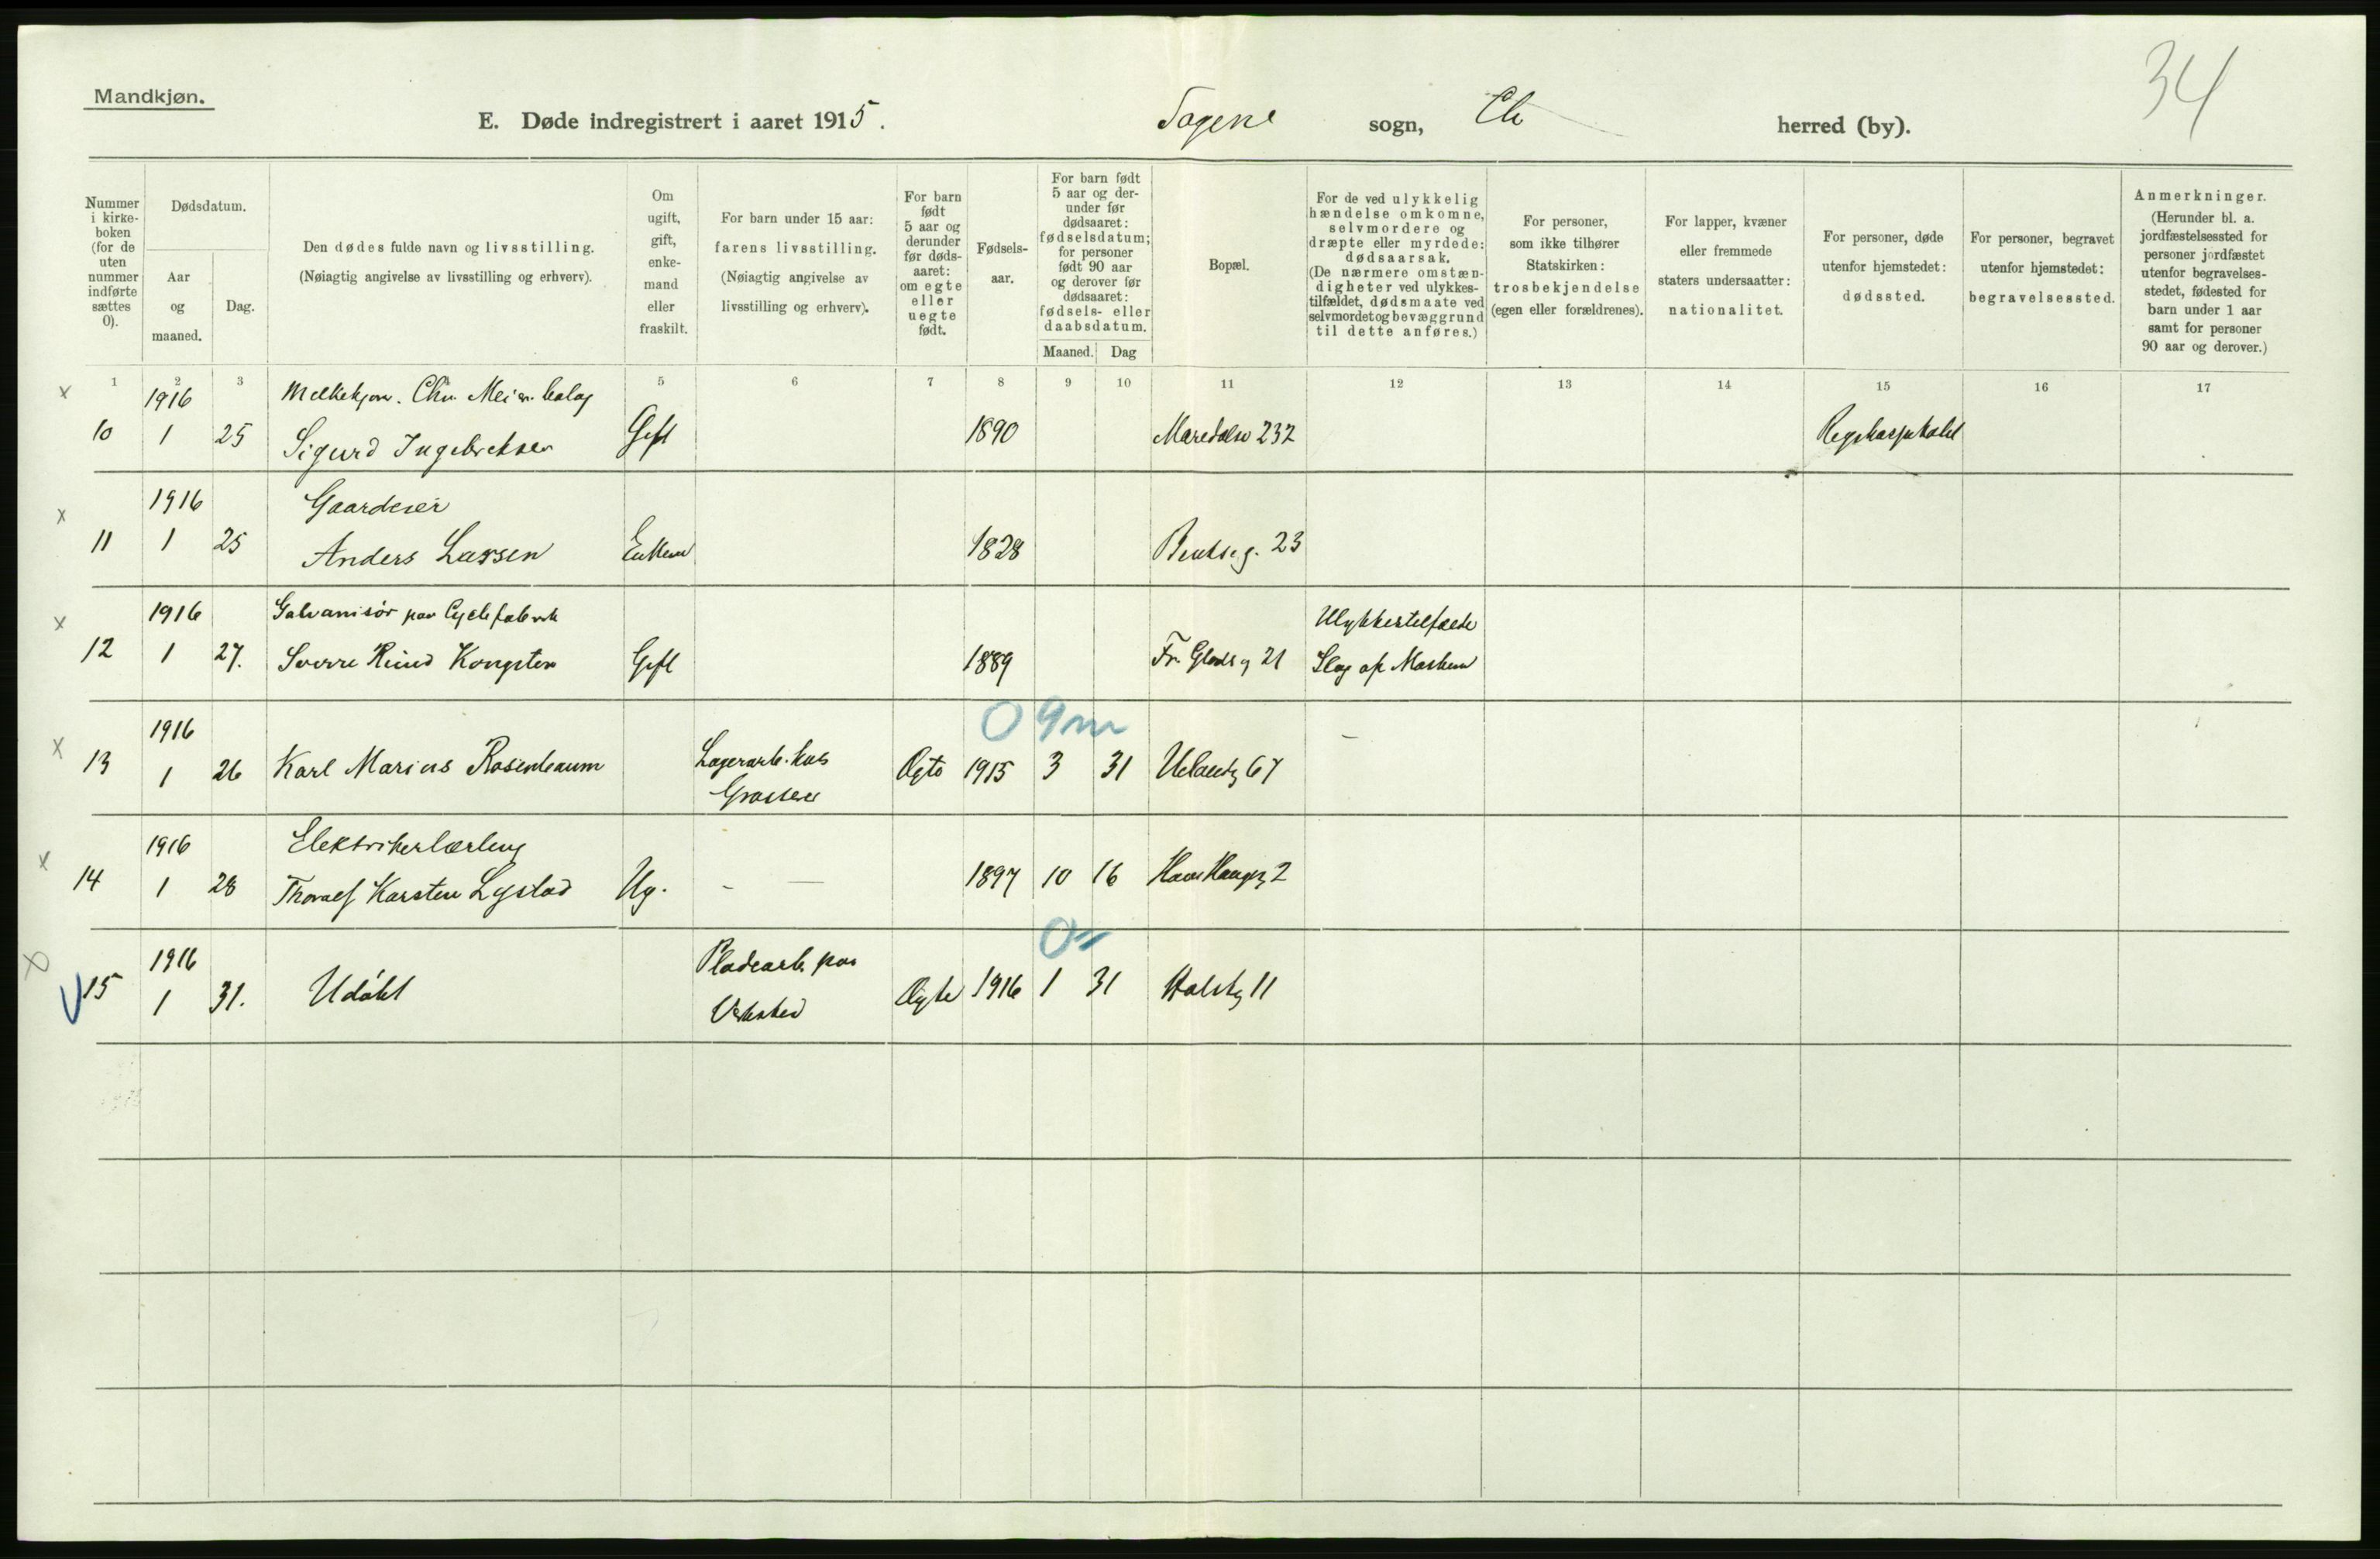 34
Mandkjøn.
E. Døde indregistrert i aaret 1915. Sagene sogn, Chr herred (by).
Nummer i kirke- boken (for de uten nummer indførte sættes 0).
Dødsdatum.
Aar og maaned.
Dag.
Den dødes fulde navn og livsstilling.
(Nøiagtig angivelse av livsstilling og erhverv).
Om ugift, gift, enke- mand eller fraskilt.
For barn under 15 aar: farens livsstilling. (Nøiagtig angivelse av livsstilling og erhverv).
For barn født 5 aar og derunder før døds- aaret: om egte eller uegte født.
Fødsels- aar.
For barn født 5 aar og der- under før dødsaaret: fødselsdatum; for personer født 90 aar og derover før dødsaaret: fødsels- eller daabsdatum.
Maaned. Dag
Bopæl.
For de ved ulykkelig hændelse omkomne, selvmordere og dræpte eller myrdede: dødsaarsak. (De nærmere omstæn- digheter ved ulykkes- tilfældet, dødsmaate ved selvmordet og bevæggrund til dette anføres.)
For personer, som ikke tilhører Statskirken: trosbekjendelse (egen eller forældrenes).
For lapper, kvæner eller fremmede staters undersaatter: nationalitet.
For personer, døde utenfor hjemstedet: dødssted.
For personer, begravet utenfor hjemstedet: begravelsessted.
Anmerkninger. (Herunder bl. a. jordfæstelsessted for personer jordfæstet utenfor begravelses- stedet, fødested for barn under 1 aar samt for personer 90 aar og derover.)
1 2 3 5 6 7 8 9 10 11 12 13 14 15 16 17
x 1916 Melkekjør. Chr. Meieribolag
10 1 25 Sigurd Ingebretsen Gift 1890 Maredalsv 232 Rigshospitalet
x 1916 Gaardeier
11 1 25 Anders Larsen Enkem 1828 Bentseg. 23
x 1916 Galvanisør paa Cyclefabrik Ulykkestilfælde
12 1 27. Sverre Rund Kongsten Gift 1889 Fr. Glads g 21 Slag af Maskin
09m
x 1916 Lagerarb. hos
13 1 26 Karl Marius Rosenbaum Grosserer Ægte 1915 3 31 Uelandsg 67
x 1916 Elektrikerlærling
14 1 28 Thoralf Karsten Lystad Ug. - — 1897 10 16 Hans Haugesg 2
0
x 1916 Pladearb. paa
V 15 1 31. Udøbt Verksted Ægte 1916 1 31 Holstsg 11